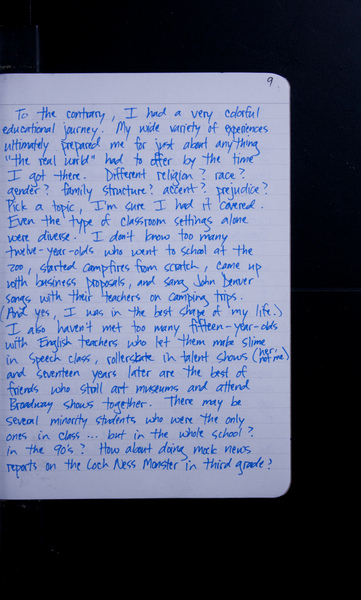 9
To the contrary, I had a very colorful
educational journey. My wide variety of experiences
ultimately prepared me for just about anything
"the real world" had to offer by the time
I got there. Different religion? race?
gender? family structure? accent? prejudice?
Pick a topic, I'm sure I had it covered.
Even the type of classroom settings alone
were diverse. I don't know too many
twelve-year-olds who went to school at the
zoo, started campfires from scratch, came up
with business proposals, and sang John Denver
songs with their teachers on camping trips.
(And yes, I was in the best shape of my life.)
I also haven't met too many fifteen-year-olds
with English teachers who let them make slime
in speech class, rollerskate in talent shows (her, not me)
and seventeen years later are the best of
friends who stroll art museums and attend
Broadway shows together. There may be
several minority students who were the only
ones in class... but in the whole school?
in the 90's? How about doing mock news
reports on the Loch Ness Monster in third grade?